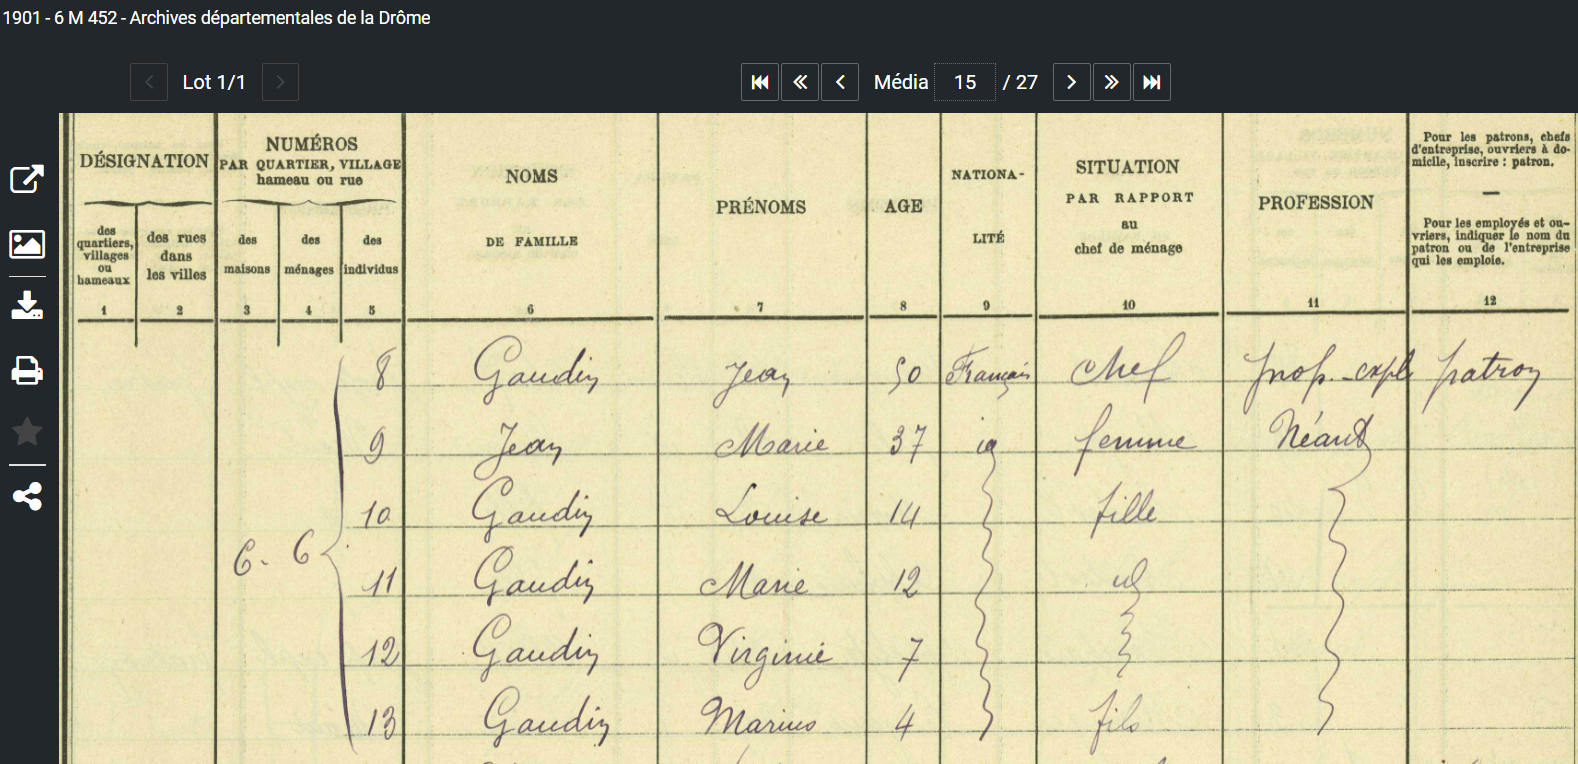 1901 - 6 M 452 - Archives départementales de la Drôme
Lot 1/1
Média 15 / 27
DÉSIGNATION
des quartiers, villages ou hameaux
des rues dans les villes
NUMÉROS
PAR QUARTIER, VILLAGE
hameau ou rue
des maisons
des ménages
des individus
NOMS
DE FAMILLE
PRÉNOMS
AGE
NATIONA-
LITÉ
SITUATION
PAR RAPPORT
au
chef de ménage
PROFESSION
Pour les patrons, chefs
d'entreprise, ouvriers à do-
micile, inscrire : patron.
—
Pour les employés et ou-
vriers, indiquer le nom du
patron ou de l'entreprise
qui les emploie.
1 2 3 4 5 6 7 8 9 10 11 12
8 Gaudin Jean 50 Français chef prop.-expl patron
9 Jean Marie 37 id femme Néant
10 Gaudin Louise 14 fille
6. 6
11 Gaudin Marie 12 id
12 Gaudin Virginie 7
13 Gaudin Marius 4 fils